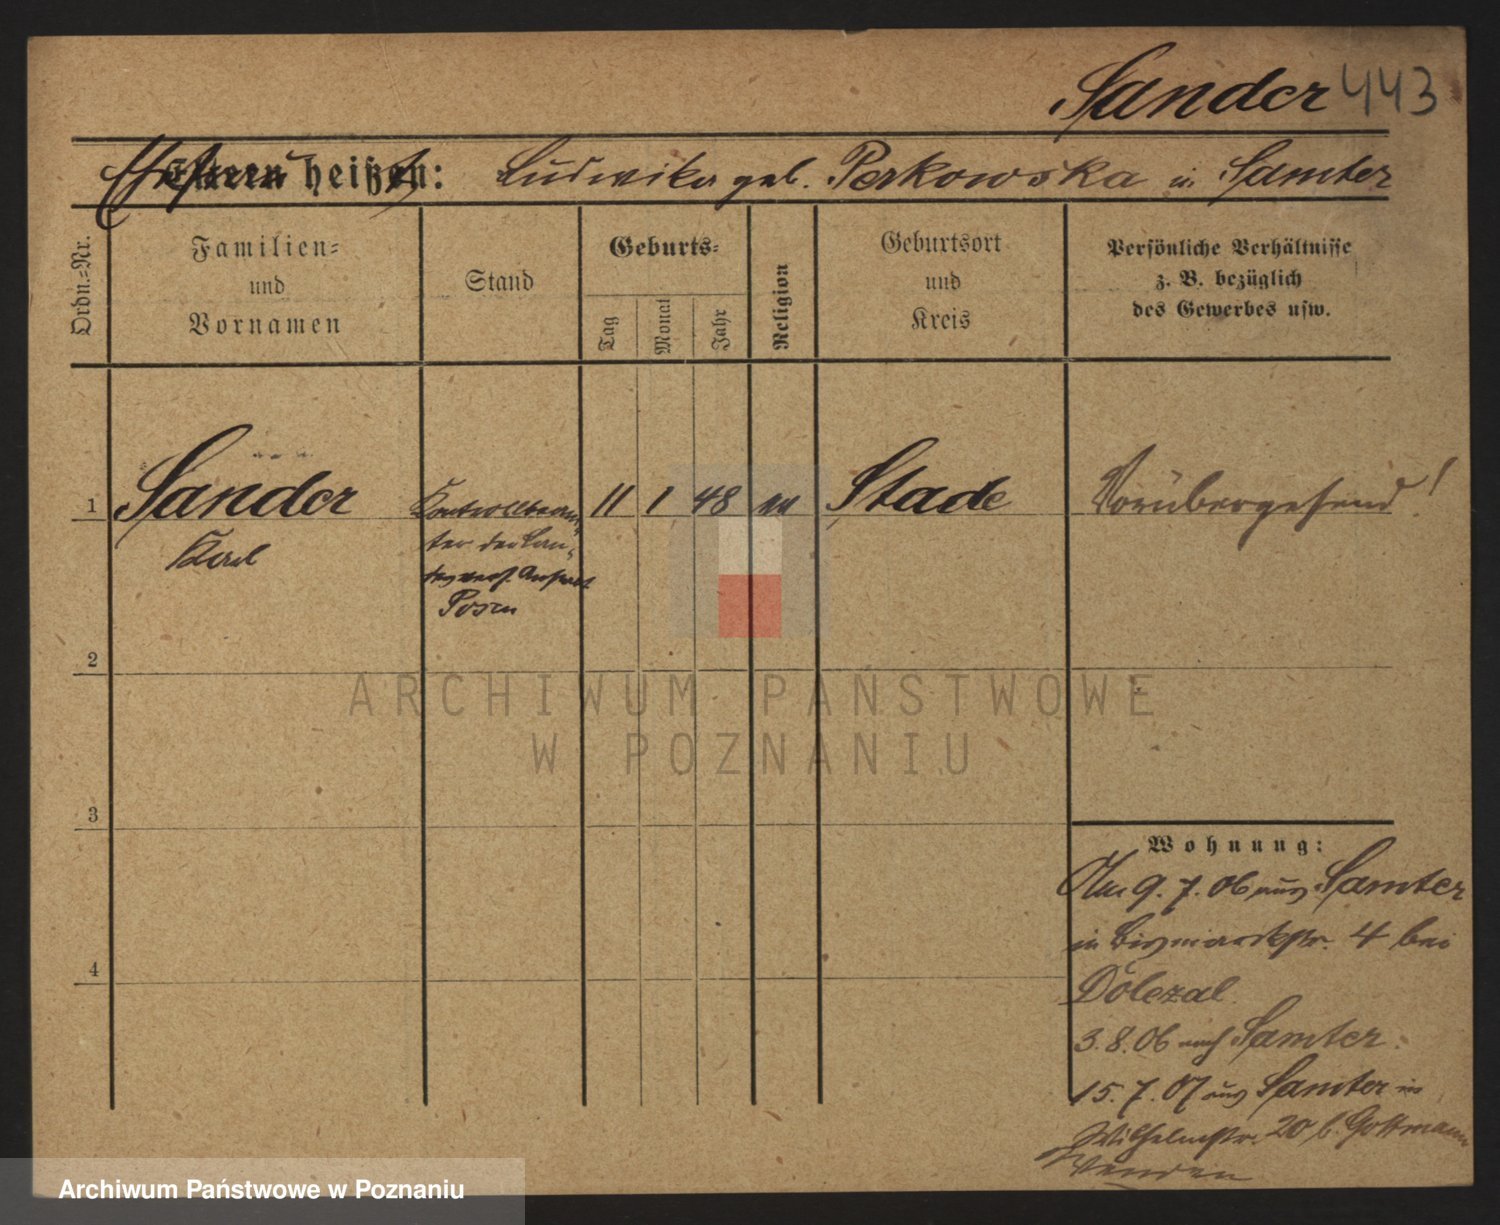 Sander 443
Ehefrau heißt: Ludwika geb. Perkowska in Samter
Ordn.-Nr.
Familien-
und
Vornamen
Stand
Geburts-
Tag
Monat
Jahr
Religion
Geburtsort
und
Kreis
Persönliche Verhältnisse
z. B. bezüglich
des Gewerbes usw.
1 Sander
Karl
Kontrollbeam-
ter der Lan-
desvers. Anstalt
Posen
11 1 48
Stade
Vorübergehend!
2
3
4
Wohnung:
Am 9.7.06 aus Samter
in Bismarckstr. 4 bei
Dolezal
3.8.06 nach Samter.
15.7.07 aus Samter in
Wilhelmstr. 20 b. Gottmann
Wenden
ARCHIWUM PAŃSTWOWE
W POZNANIU
Archiwum Państwowe w Poznaniu